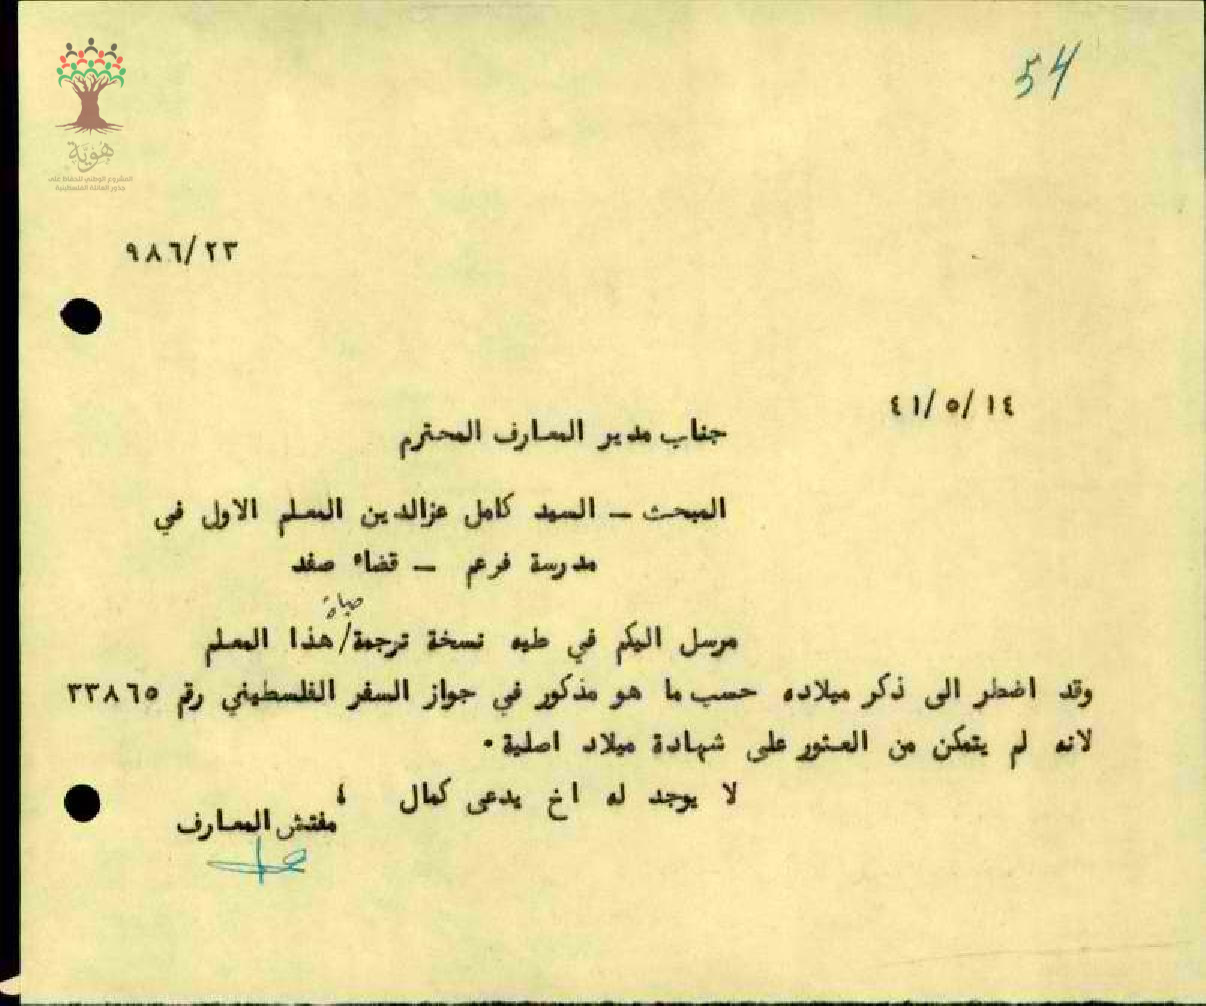 54
هوية
المشروع الوطني للحفاظ على
جذور العائلة الفلسطينية
٩٨٦/٢٣
٤١/٥/١٤
جناب مدير المعارف المحترم
المبحث - السيد كامل عزالدين المعلم الاول في
مدرسة فرعم - قضاء صفد
حياة
مرسل اليكم في طيه نسخة ترجمة/هذا المعلم
وقد اضطر الى ذكر ميلاده حسب ما هو مذكور في جواز السفر الفلسطيني رقم ٣٣٨٦٥
لانه لم يتمكن من العثور على شهادة ميلاد اصلية.
لا يوجد له اخ يدعى كمال ؛
مفتش المعارف